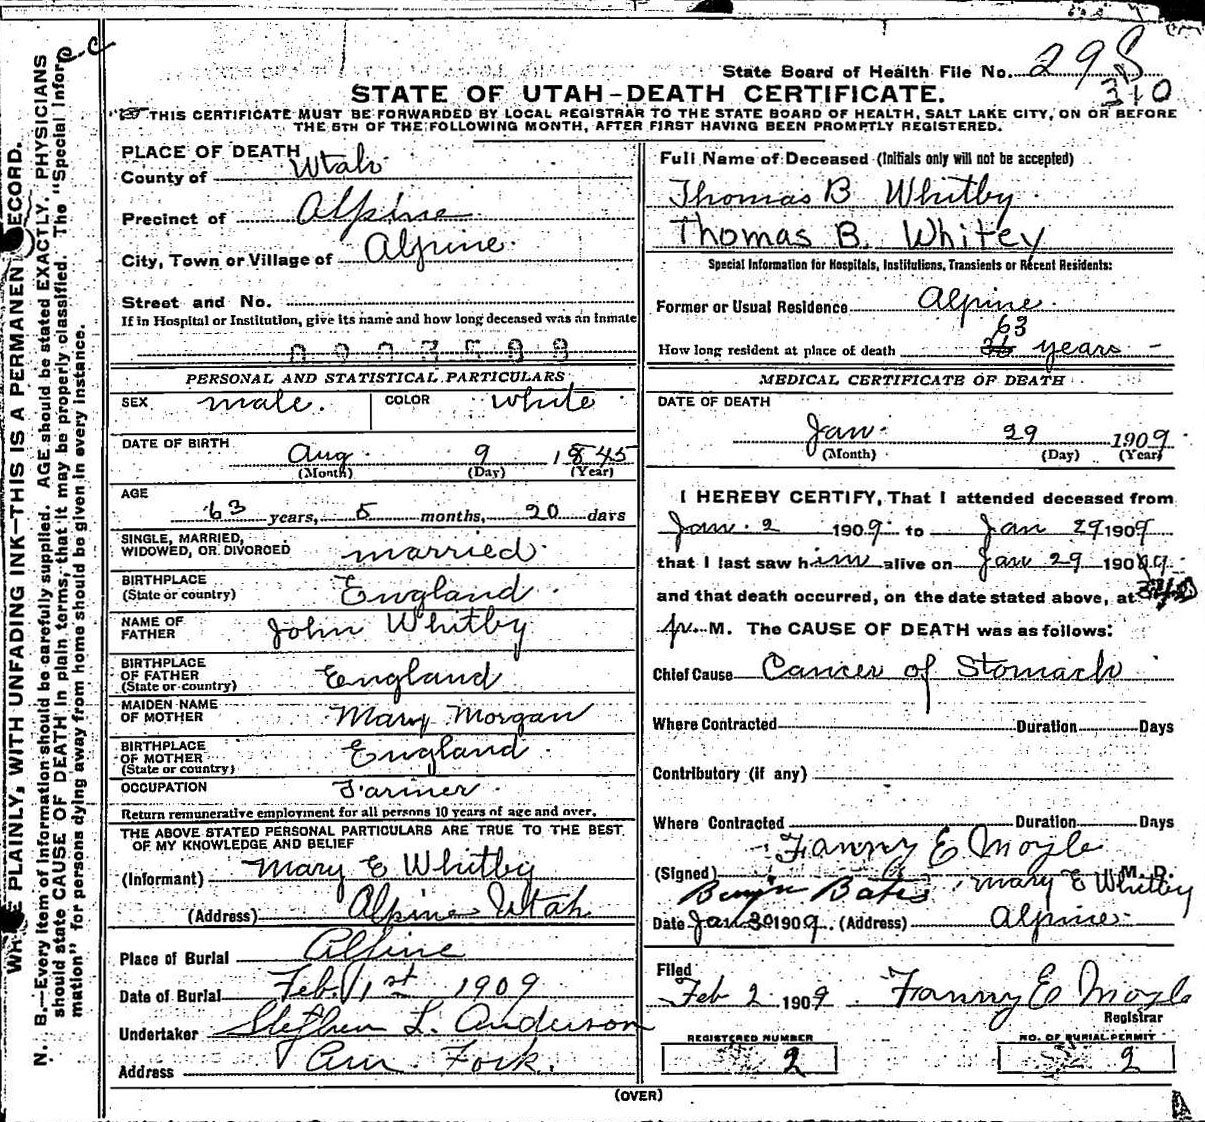 State Board of Health File No. 298
310
STATE OF UTAH-DEATH CERTIFICATE.
THIS CERTIFICATE MUST BE FORWARDED BY LOCAL REGISTRAR TO THE STATE BOARD OF HEALTH, SALT LAKE CITY, ON OR BEFORE
THE 5TH OF THE FOLLOWING MONTH, AFTER FIRST HAVING BEEN PROMPTLY REGISTERED.
PLACE OF DEATH
County of Utah
Precinct of Alpine
City, Town or Village of Alpine
Street and No.
If in Hospital or Institution, give its name and how long deceased was an inmate
PERSONAL AND STATISTICAL PARTICULARS
SEX male. COLOR white
DATE OF BIRTH
Aug 9 1845
(Month) (Day) (Year)
AGE
63 years, 5 months, 20 days
SINGLE, MARRIED,
WIDOWED, OR DIVORCED married
BIRTHPLACE
(State or country) England
NAME OF
FATHER John Whitby
BIRTHPLACE
OF FATHER
(State or country) England
MAIDEN NAME
OF MOTHER Mary Morgan
BIRTHPLACE
OF MOTHER
(State or country) England
OCCUPATION Farmer
Return remunerative employment for all persons 10 years of age and over.
THE ABOVE STATED PERSONAL PARTICULARS ARE TRUE TO THE BEST
OF MY KNOWLEDGE AND BELIEF
(Informant) Mary E Whitby
(Address) Alpine Utah
Place of Burial Alpine
Date of Burial Feb 1st 1909
Undertaker Stephen L. Anderson
Address Am. Fork.
Full Name of Deceased (Initials only will not be accepted)
Thomas B Whitby
Thomas B. Whitey
Special Information for Hospitals, Institutions, Transients or Recent Residents:
Former or Usual Residence Alpine
63
How long resident at place of death years
MEDICAL CERTIFICATE OF DEATH
DATE OF DEATH
Jan 29 1909
(Month) (Day) (Year)
I HEREBY CERTIFY, That I attended deceased from
Jan. 2 1909 to Jan 29 1909
that I last saw him alive on Jan 29 1909
and that death occurred, on the date stated above, at
p. M. The CAUSE OF DEATH was as follows:
Chief Cause Cancer of Stomach
Where Contracted Duration Days
Contributory (if any)
Where Contracted Duration Days
Fanny E Moyle
(Signed) M. D.
Benjn Bates, Mary E Whitby
Date Jan 30 1909. (Address) Alpine
Filed
Feb 2 1909 Fanny E Moyle
Registrar
REGISTERED NUMBER
2
NO. OF BURIAL PERMIT
2
(OVER)
PLAINLY, WITH UNFADING INK-THIS IS A PERMANENT RECORD.
N. B.-Every item of information should be carefully supplied. AGE should be stated EXACTLY. PHYSICIANS
should state CAUSE OF DEATH in plain terms, that it may be properly classified. The "Special Infor-
mation" for persons dying away from home should be given in every instance.